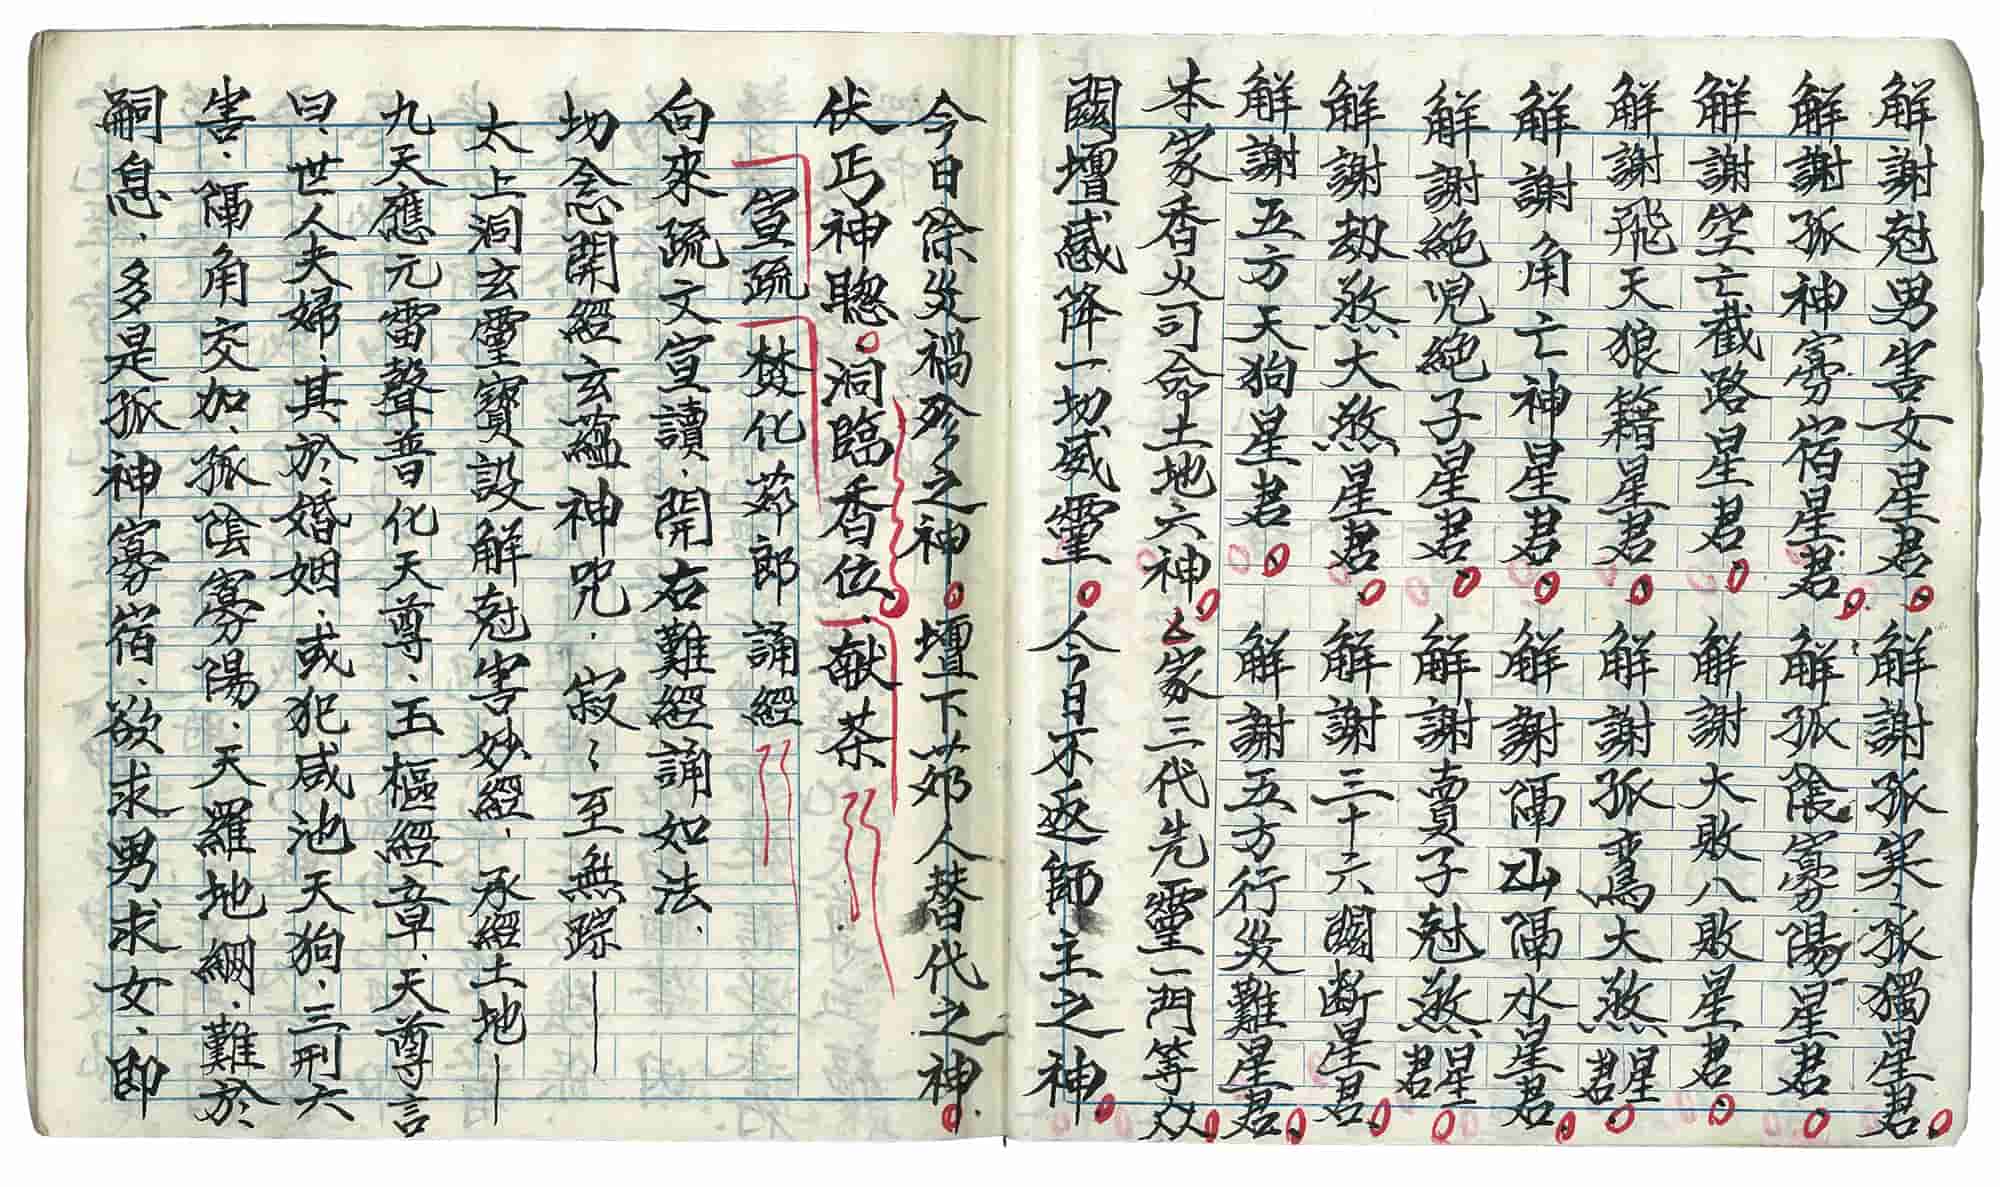 解謝尅男害女星君 解謝孤矣孤獨星君
解謝孤神寡宿星君 解孤隂寡陽星君
解謝空亡截路星君 解謝大敗八敗星君
解謝飛天狼籍星君 解謝孤鸞大煞星君
解謝角亡神星君 解謝隔山隔水星君
解謝絕兒絕子星君 解謝賣子尅煞星君
解謝劫煞大煞星君 解謝三十六關斷星君
解謝五方天狗星君 解謝五方行災難星君
本家香火司命土地六神 厶家三代先靈一門等众
關壇感降一切威靈 人今日不返師主之神
今日除災禍殄之神 壇下茆人替代之神
伏丐神聰 洞臨香位、献茶
宣疏 焚化茆郎 誦經
向來疏文宣讀、開右難經誦如法、
切念開經玄蘊神咒、寂〻至無踪—
太上洞玄靈寶設解尅害妙經、承經土地—
九天應元雷聲普化天尊、玉樞經章、天尊言
曰、世人夫婦、其於婚姻、或犯咸池天狗、三刑六
害、隔角交加、孤隂寡陽、天羅地網、難於
嗣息、多是孤神寡宿、欲求男求女、即